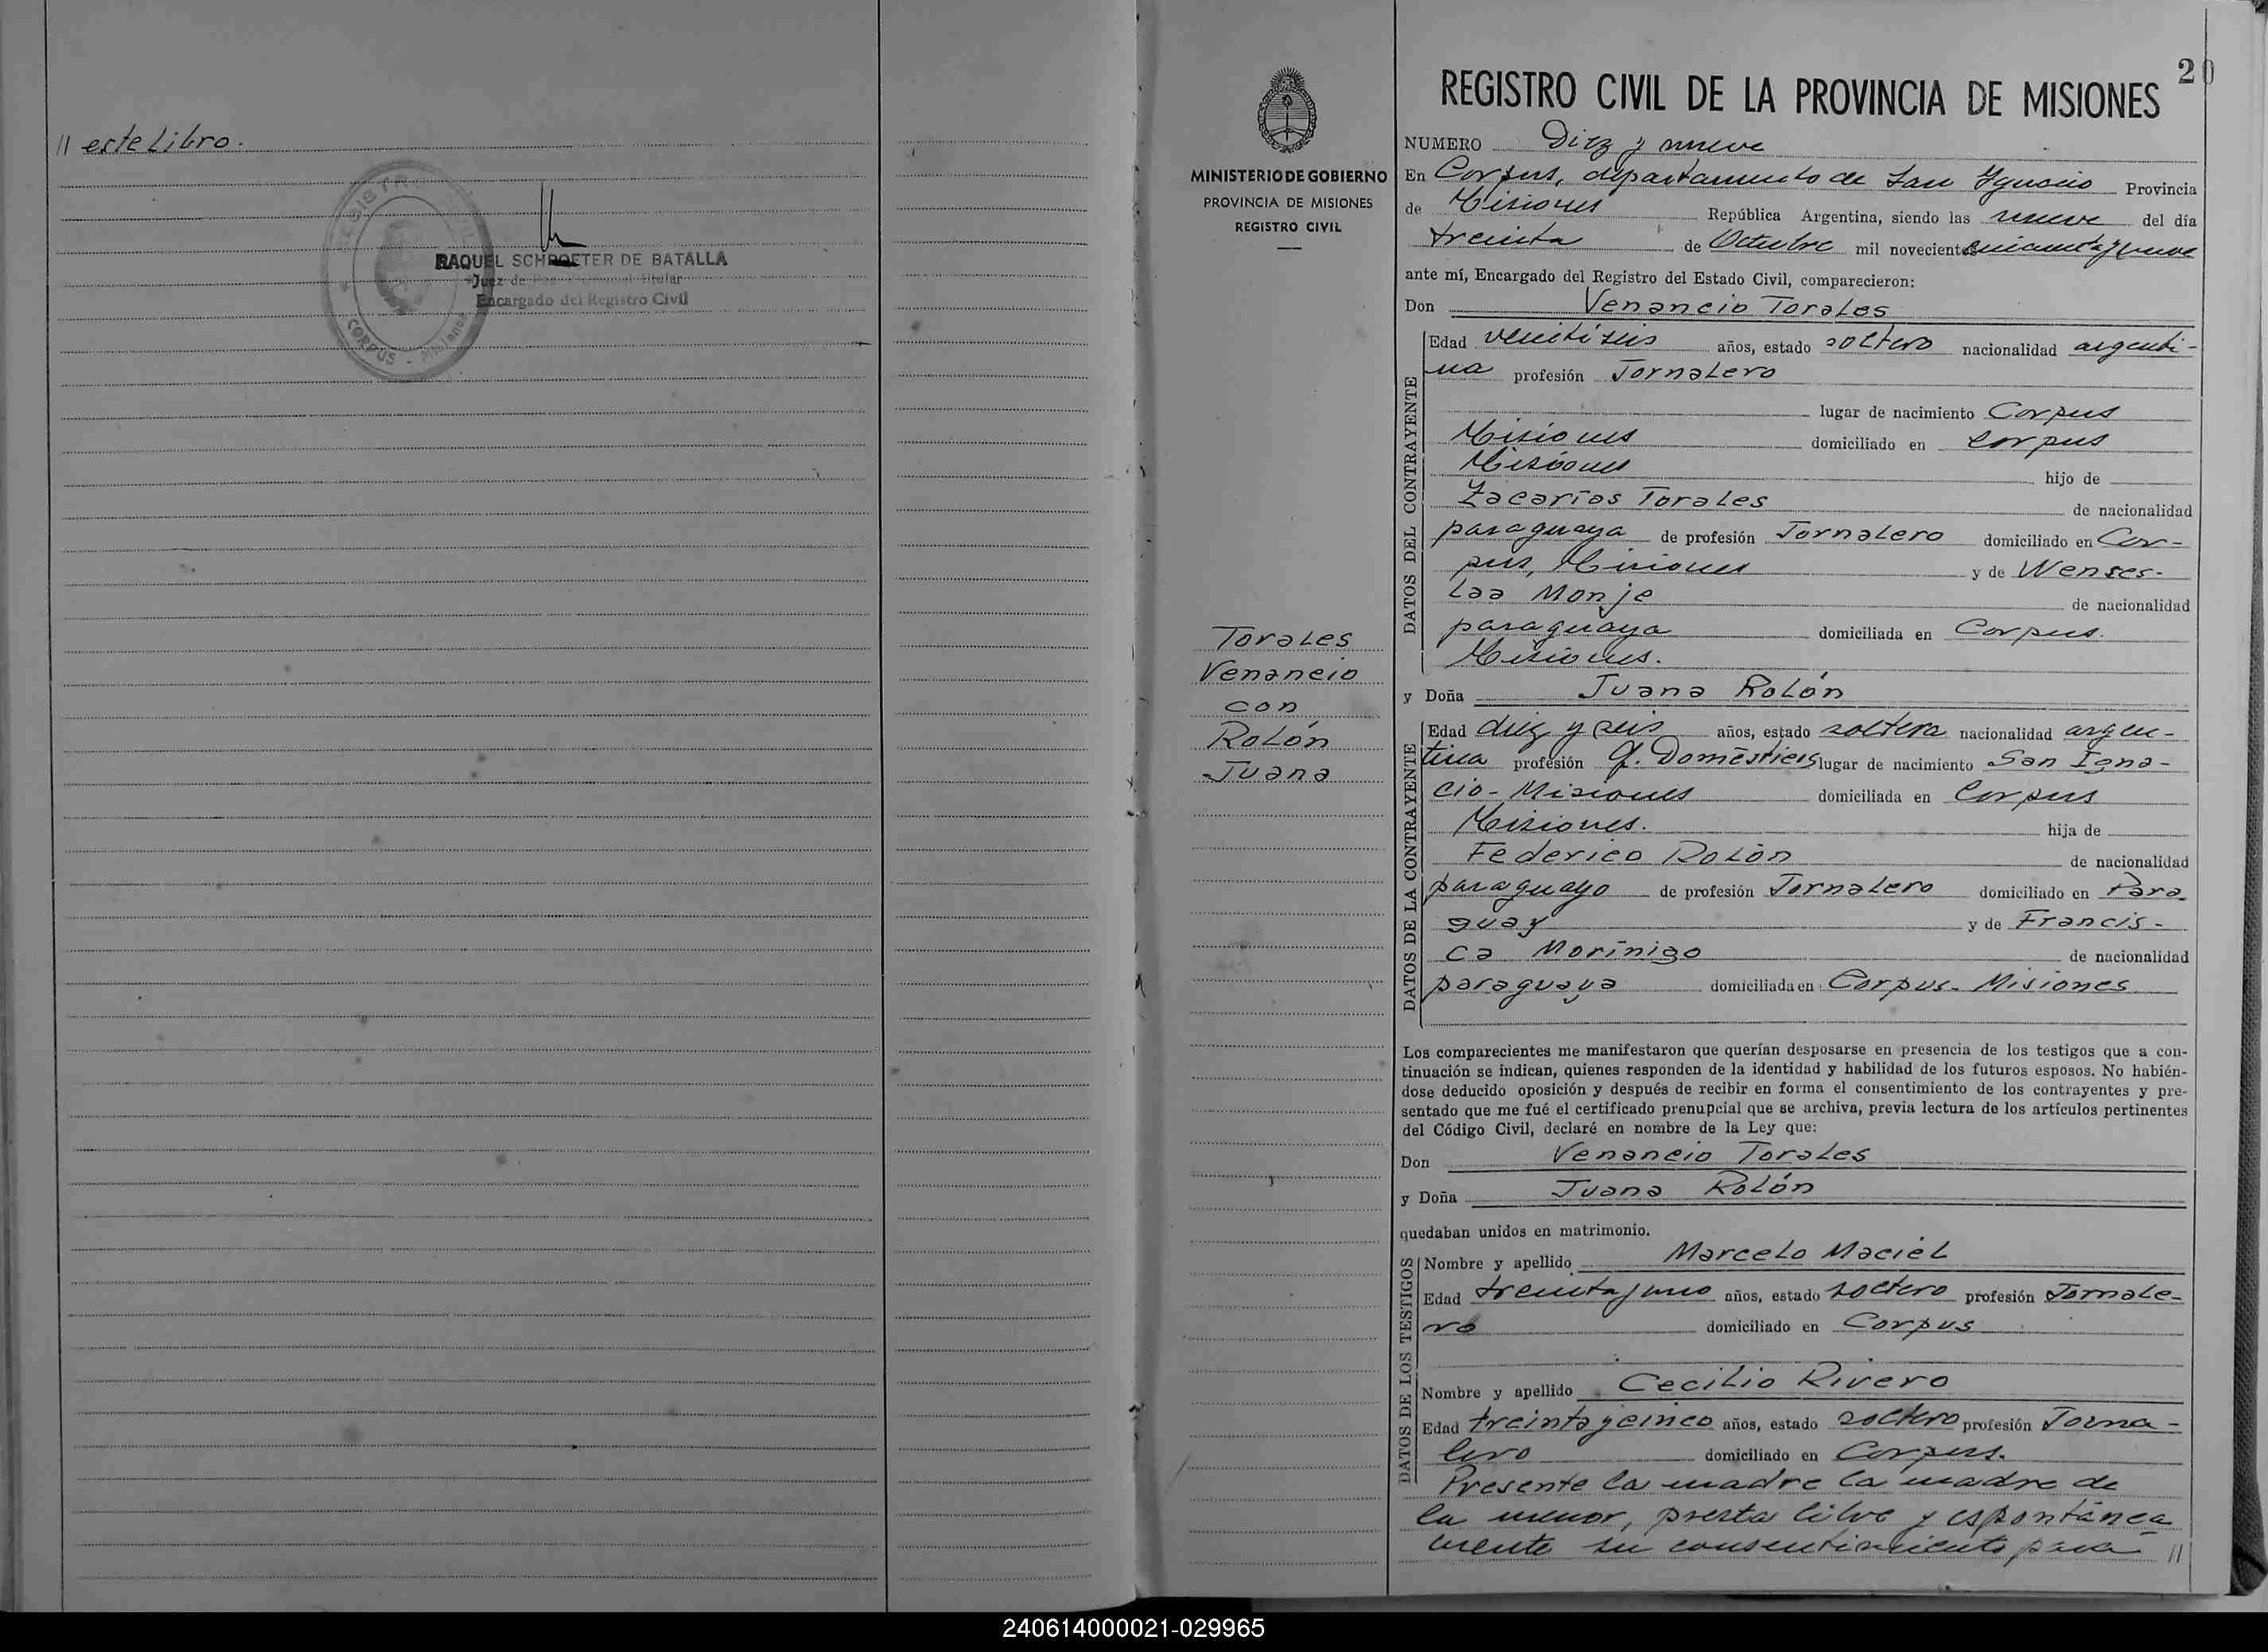 // este Libro.
REGISTRO CIVIL
CORPUS - Misiones
RAQUEL SCHROETER DE BATALLA
Juez de Paz titular
Encargado del Registro Civil
MINISTERIO DE GOBIERNO
PROVINCIA DE MISIONES
REGISTRO CIVIL
Torales
Venancio
con
Rolón
Juana
20
REGISTRO CIVIL DE LA PROVINCIA DE MISIONES
NUMERO Diez y nueve
En Corpus, departamento de San Ygnacio Provincia
de Misiones República Argentina, siendo las nueve del día
treinta de Octubre mil novecientos cincuenta y nueve
ante mí, Encargado del Registro del Estado Civil, comparecieron:
Don Venancio Torales
DATOS DEL CONTRAYENTE
Edad veintiseis años, estado soltero nacionalidad argenti-
na profesión Jornalero
lugar de nacimiento Corpus
Misiones domiciliado en Corpus
Misiones hijo de
Zacarías Torales de nacionalidad
paraguaya de profesión Jornalero domiciliado en Cor-
pus, Misiones y de Wenses-
laa Monje de nacionalidad
paraguaya domiciliada en Corpus.
Misiones.
y Doña Juana Rolón
DATOS DE LA CONTRAYENTE
Edad diez y seis años, estado soltera nacionalidad argen-
tina profesión Q. Domésticos lugar de nacimiento San Igna-
cio - Misiones domiciliada en Corpus
Misiones. hija de
Federico Rolón de nacionalidad
paraguayo de profesión Jornalero domiciliado en Para-
guay y de Francis-
ca Morínigo de nacionalidad
paraguaya domiciliada en Corpus - Misiones
Los comparecientes me manifestaron que querían desposarse en presencia de los testigos que a con-
tinuación se indican, quienes responden de la identidad y habilidad de los futuros esposos. No habién-
dose deducido oposición y después de recibir en forma el consentimiento de los contrayentes y pre-
sentado que me fué el certificado prenupcial que se archiva, previa lectura de los artículos pertinentes
del Código Civil, declaré en nombre de la Ley que:
Don Venancio Torales
y Doña Juana Rolón
quedaban unidos en matrimonio.
DATOS DE LOS TESTIGOS
Nombre y apellido Marcelo Maciel
Edad treinta y uno años, estado soltero profesión Jornale-
ro domiciliado en Corpus
Nombre y apellido Cecilio Rivero
Edad treinta y cinco años, estado soltero profesión Jorna-
lero domiciliado en Corpus.
Presente la madre la madre de
la menor, presta libre y espontánea
mente su consentimiento para //
240614000021-029965